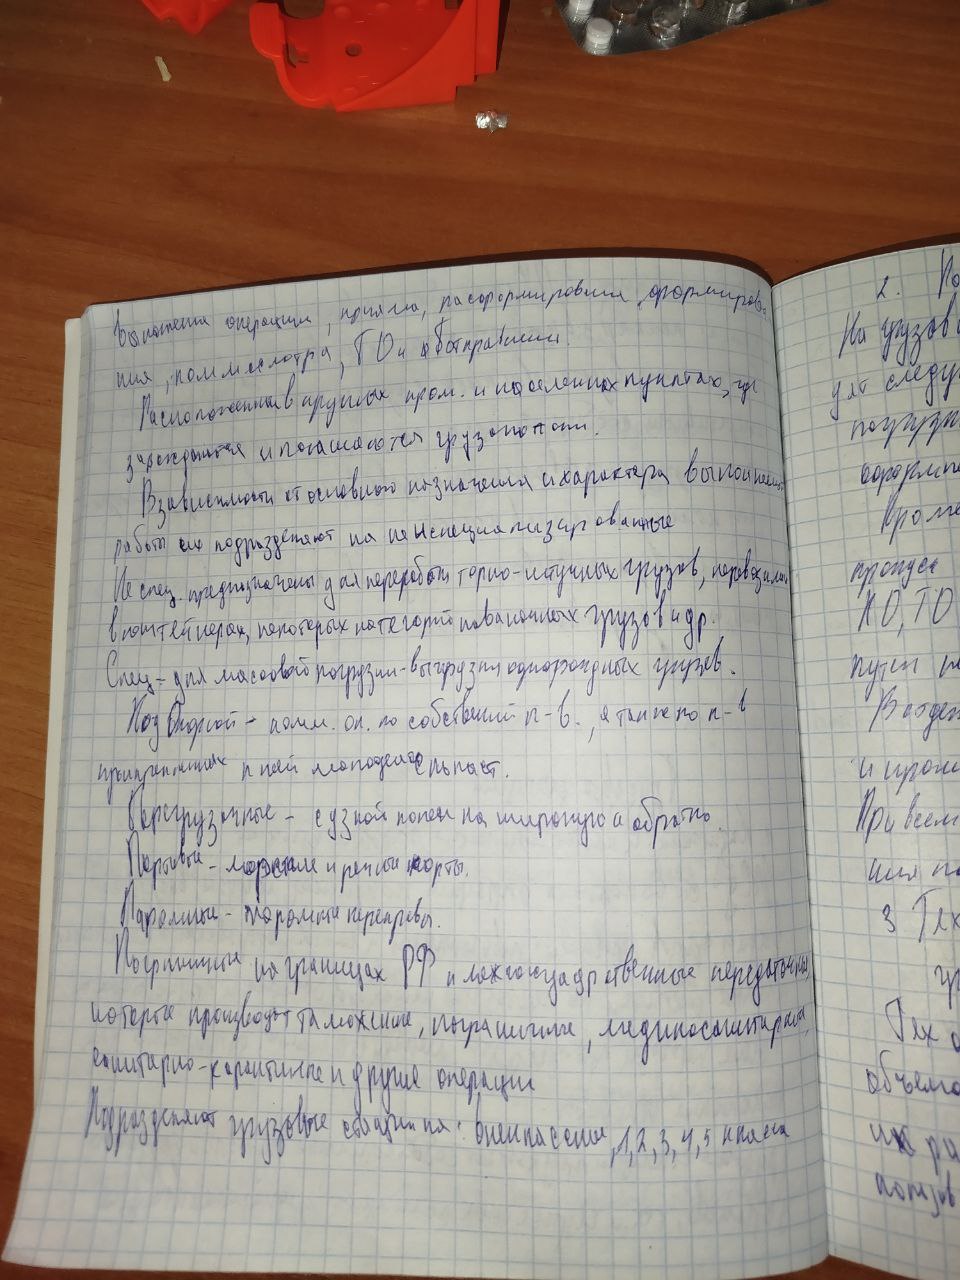 Выполнения операции, приема, расформирования, формирова-
ния, коммесмотра, ТО и отправления.
Расположенны в крупных пром. и населенных пунктах, где
зарождаются и погашаются грузопотоки.
В зависимости от основного назначения и характера выполняемой
работы их подразделяют на не и специализированные
Не спец. предназначены для переработки тарно-штучных грузов, перевозимых
в контейнерах, некоторых категорий повагонных грузов и др.
Спец - для массовой погрузки-выгрузки однородных грузов.
- комм. оп. по собственной п-в., а также по п-в
прикрепленных к ней
Перегрузочные - с узкой колеи на широкую и обратно.
Портовые - морские и речные порты.
Паромные - паромные переправы.
Пограничные на границах РФ и межгосударственные передаточные,
которые производят таможенные, пограничные, медикосанитарные,
санитарно-карантинные и другие операции
Подразделяют грузовые станции на: внеклассные, 1, 2, 3, 4, 5 класса
2. По
На грузов
дят следу
погрузк
оформле
Кроме
пропуск
КО, ТО
пути
В отде
и пром
При всем
ния
3 Тех
Тех
объемо
их ра